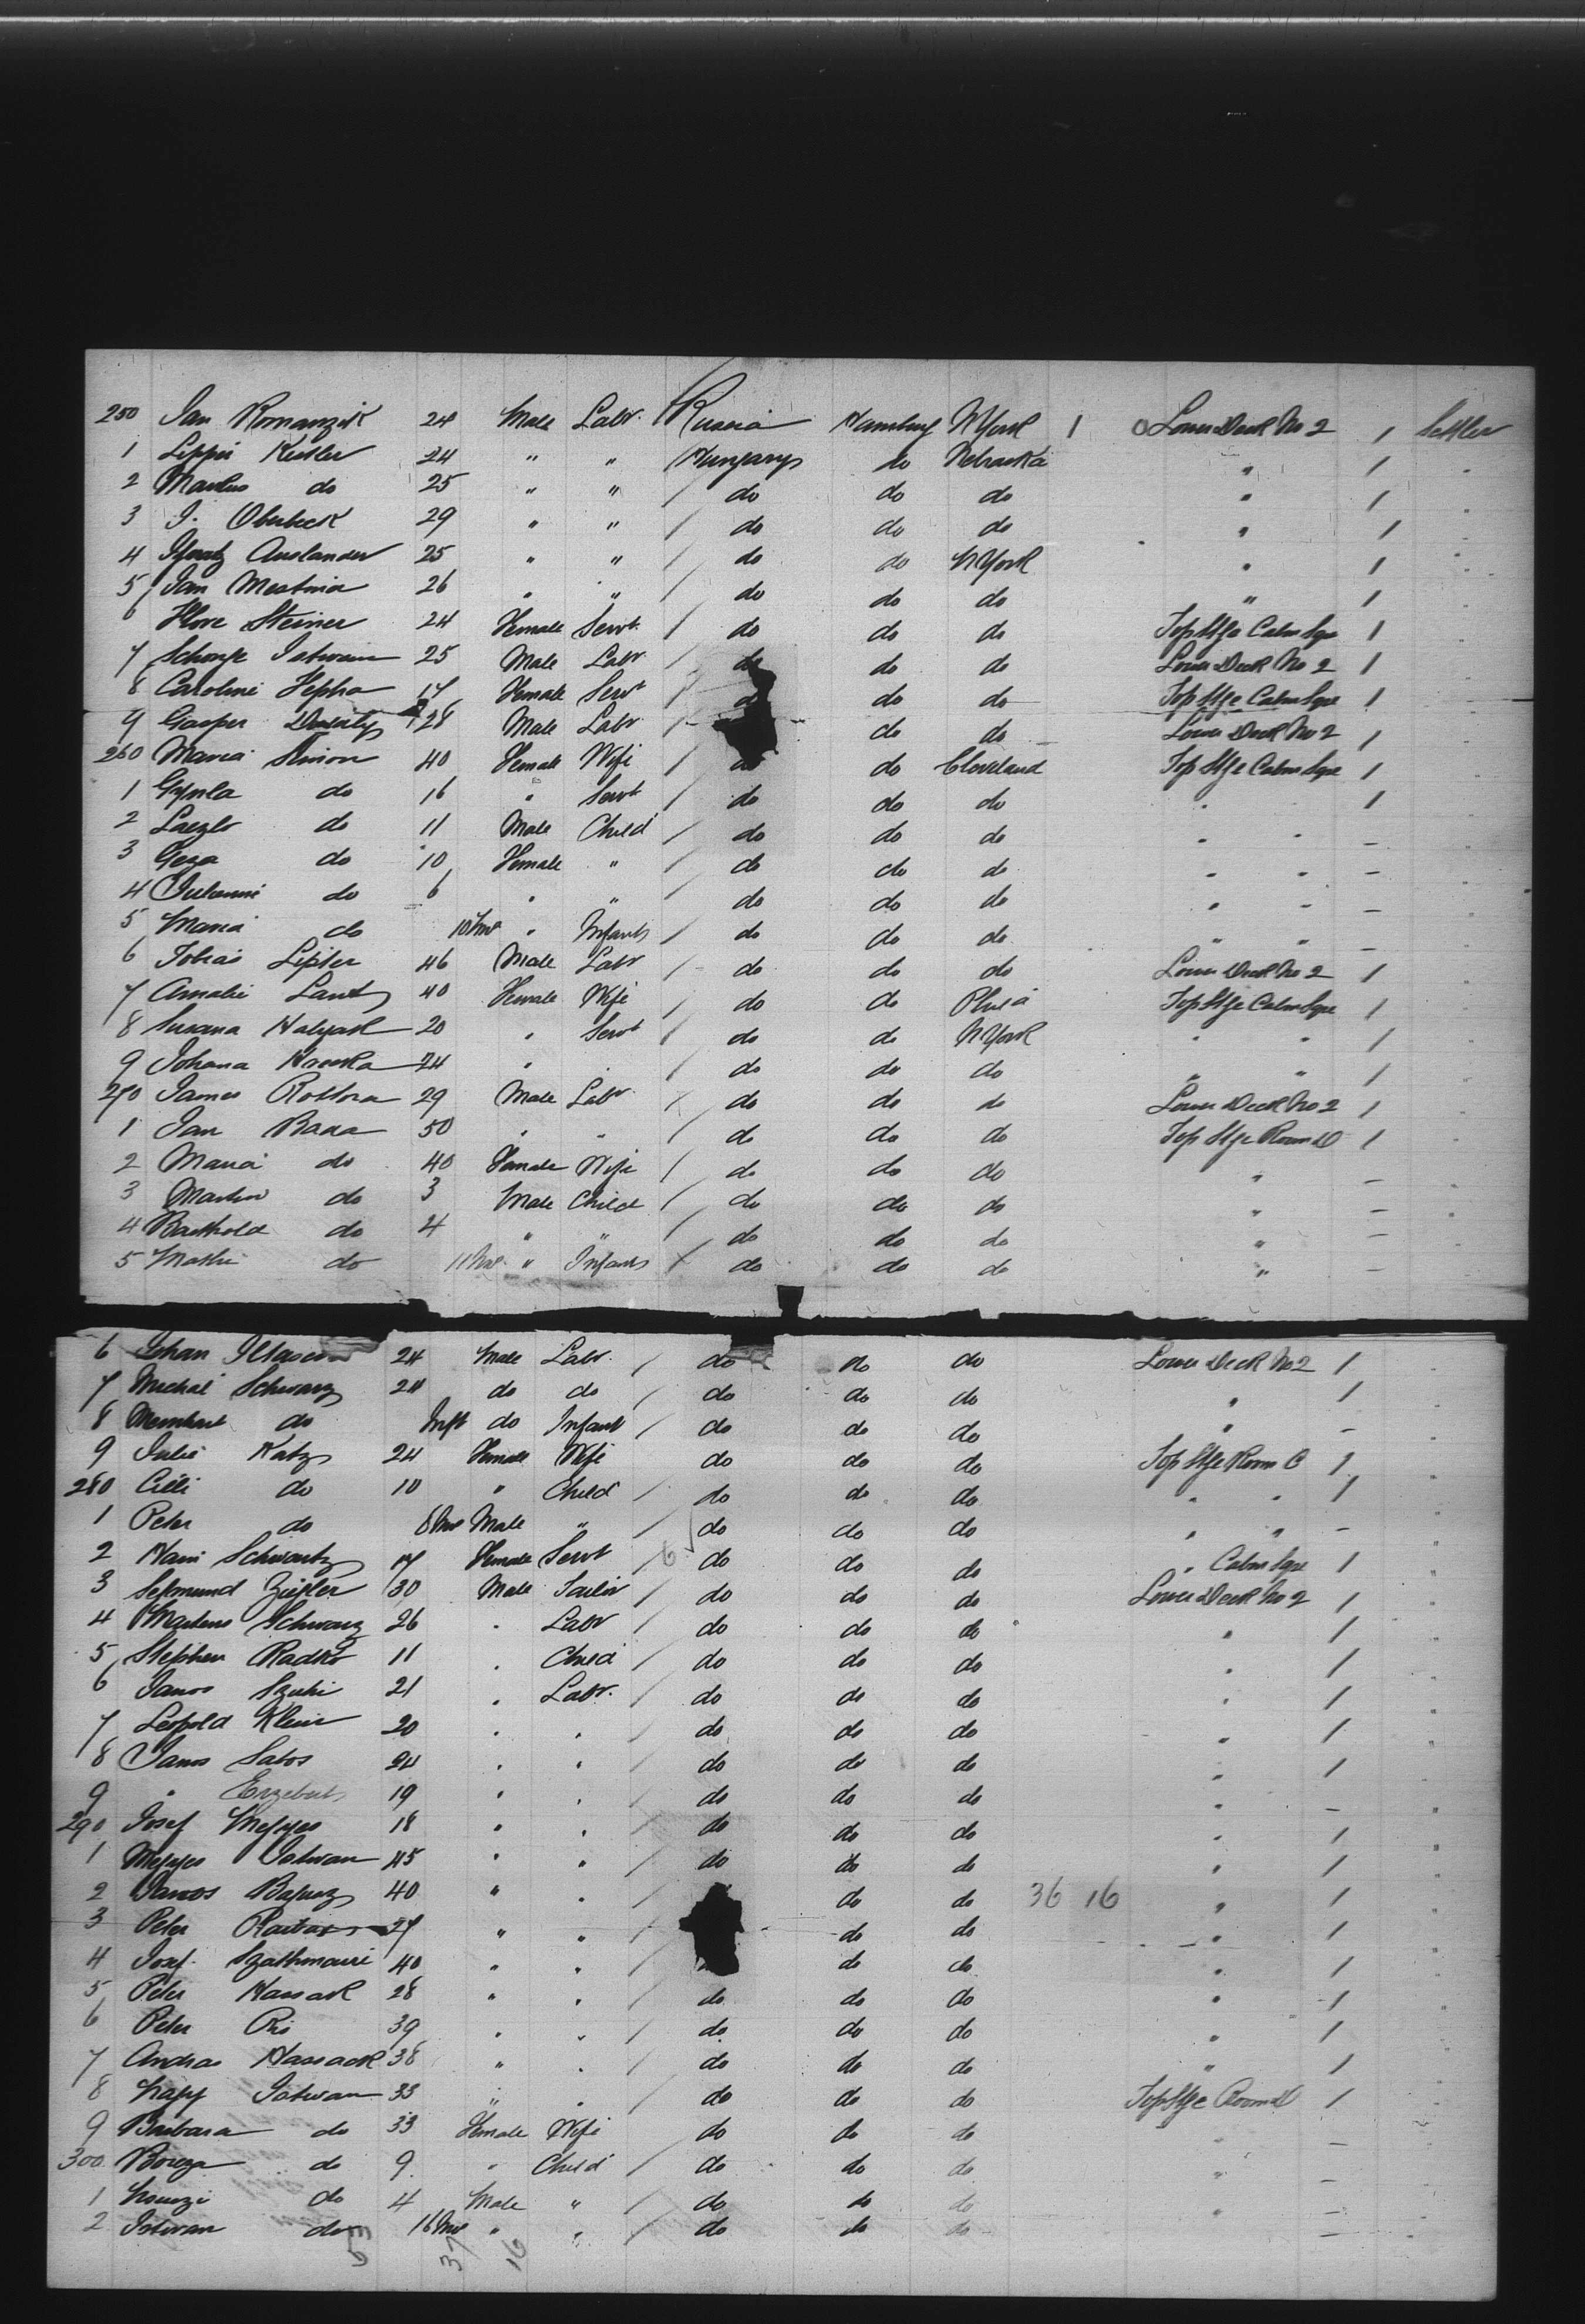 250 Jan Romanzik 24 Male Labr. Russia Hamburg N York 1 0 Lower Deck No 2 1 Settler
1 Lippi Kesler 24 " " Hungary do Nebraska " 1
2 Markus do 25 " " / do do do " 1
3 J. Oberbeck 29 " " / do do do " 1
4 Ignatz Auslander 25 " " / do do N York " 1
5 Jan Mestnia 26 " " / do do do " 1
6 Steiner 24 Female Servt. / do do do Top Stge Cabm Sqre 1
7 Istwan 25 Male Labr / do do do Lower Deck No 2 1
8 Caroline Hepha 17 Female Servt / do do do Top Stge Cabm Sqre 1
9 Gasper 28 Male Labr / do do Lower Deck No 2 1
260 Maria Simon 40 Female Wife / do do Cleveland Top Stge Cabm Sqre 1
1 Gyula do 16 " Servt / do do do " 1
2 Laezlo do 11 Male Child / do do do " " –
3 Geza do 10 Female " / do do do " " –
4 Julanni do 6 " " / do do do " " –
5 Maria do 10 Mos " Infants / do do do " " –
6 Tobias Lipter 46 Male Labr / do do do Lower Deck No 2 1
7 Amalie 40 Female Wife / do do Phila Top Stge Cabm Sqre 1
8 Susana Halyak 20 " Servt / do do N York " " 1
9 Johana 24 " " / do do do " " 1
270 James 29 Male Labr / do do do Lower Deck No 2 1
1 Jan Bara 50 " " / do do do Top Stge Room D 1
2 Maria do 40 Female Wife / do do do " –
3 Martin do 3 Male Child / do do do " –
4 Barthold do 4 " " / do do do " –
5 Mathi do 11 Mos " Infants / do do do " –
6 Johan 24 Male Labr. / do do do Lower Deck No 2 1
7 Michal Schwarz 24 do do / do do do " 1
8 do Inft do Infant / do do do " –
9 Julie Katz 24 Female Wife do do do Top Stge Room C 1
280 Cilli do 10 " Child / do do do " " 1
1 Peter do 8 Mos Male " / do do do " " –
2 Hani Schwartz 17 Female Servt / do do do " Cabm Sqre 1
3 Sigmund Ziegler 30 Male / do do do Lower Deck No 2 1
4 Markus Schwarz 26 " Labr / do do do " 1
5 Stephen Radko 11 " Child / do do do " 1
6 Janos Szuhi 21 " Labr. / do do do " 1
7 Leopold Klein 20 " " / do do do " 1
8 Janos Sabos 24 " " / do do do " 1
9 " Erzebet 19 " " / do do do " –
290 Josef Megyes 18 " " / do do do " 1
1 Megyes Istwan 45 " " / do do do " 1
2 Janos 40 " " / do do 36 16 " 1
3 Peter 27 " " / do do " 1
4 Josef Szathmari 40 " " / do do " 1
5 Peter Hassak 28 " " / do do do " 1
6 Peter Ris 39 " " / do do do " 1
7 Andras Hassack 38 " " / do do do " 1
8 Nagy Istwan 33 " " / do do do Top Stge Room D 1
9 Barbara do 33 Female Wife / do do do " –
300 do 9 " Child / do do do " –
1 do 4 Male " / do do do " –
2 Istwan do 16 Mos " " / do do do –
53 37 16